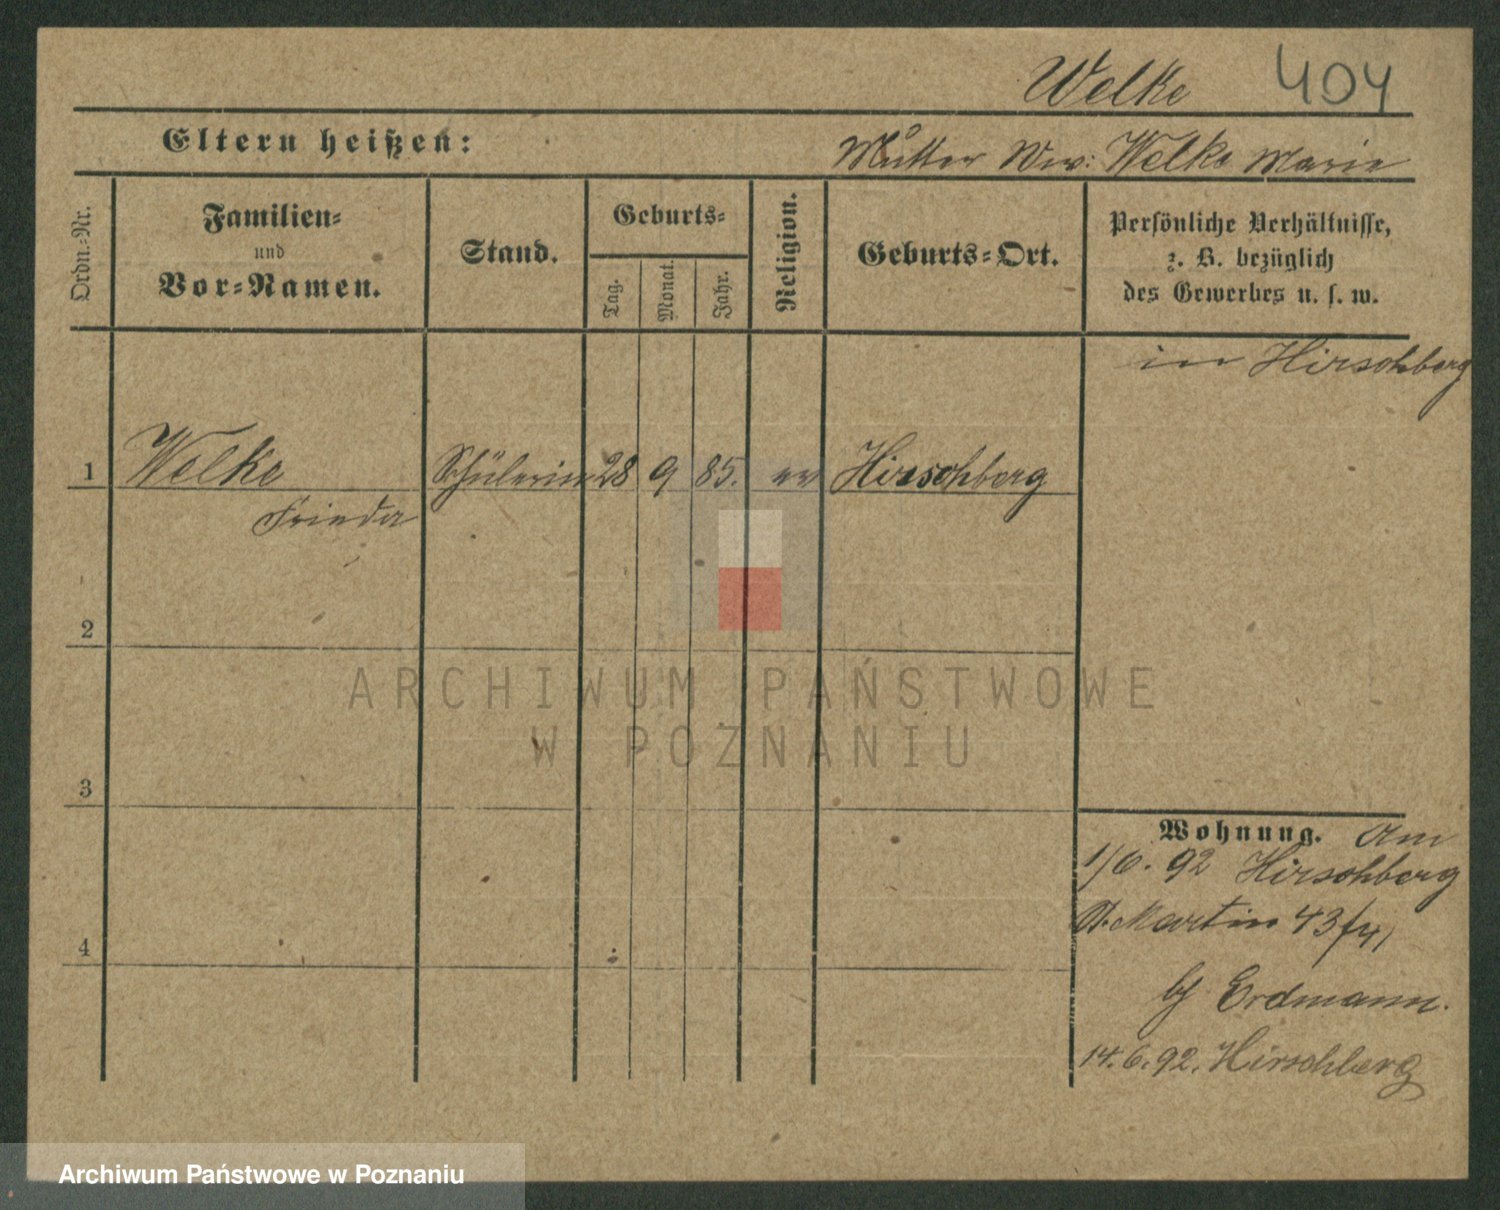 Welke 404
Eltern heißen: Mutter Ww: Welke Marie
Ordn.-Nr.
Familien-
und
Vor-Namen.
Stand.
Geburts-
Tag.
Monat.
Jahr.
Religion.
Geburts-Ort.
Persönliche Verhältnisse,
z. B. bezüglich
des Gewerbes u. s. w.
in Hirschberg
1 Welke Schülerin 28 9 85. ev Hirschberg
Frieda
2
ARCHIWUM PAŃSTWOWE
W POZNANIU
3
Wohnung. Am
1/6. 92 Hirschberg
St. Martin 43/41
bei Erdmann.
4
14.6.92. Hirschberg
Archiwum Państwowe w Poznaniu